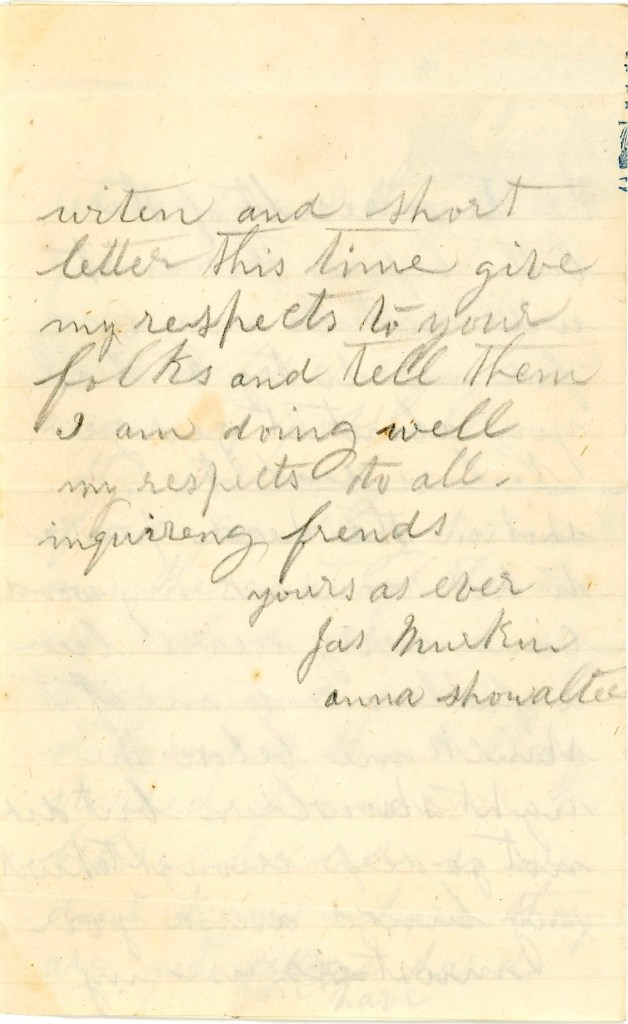 writen and short
letter this time give
my respects to your
folks and tell them
I am doing well
my respects to all
inquireng frends
yours as ever
Jas Murkin
anna showalter